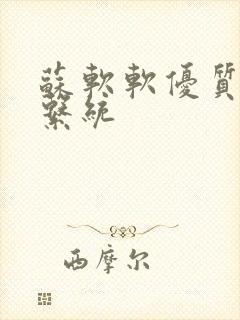 蘇軟軟優質
繫統
西摩尔